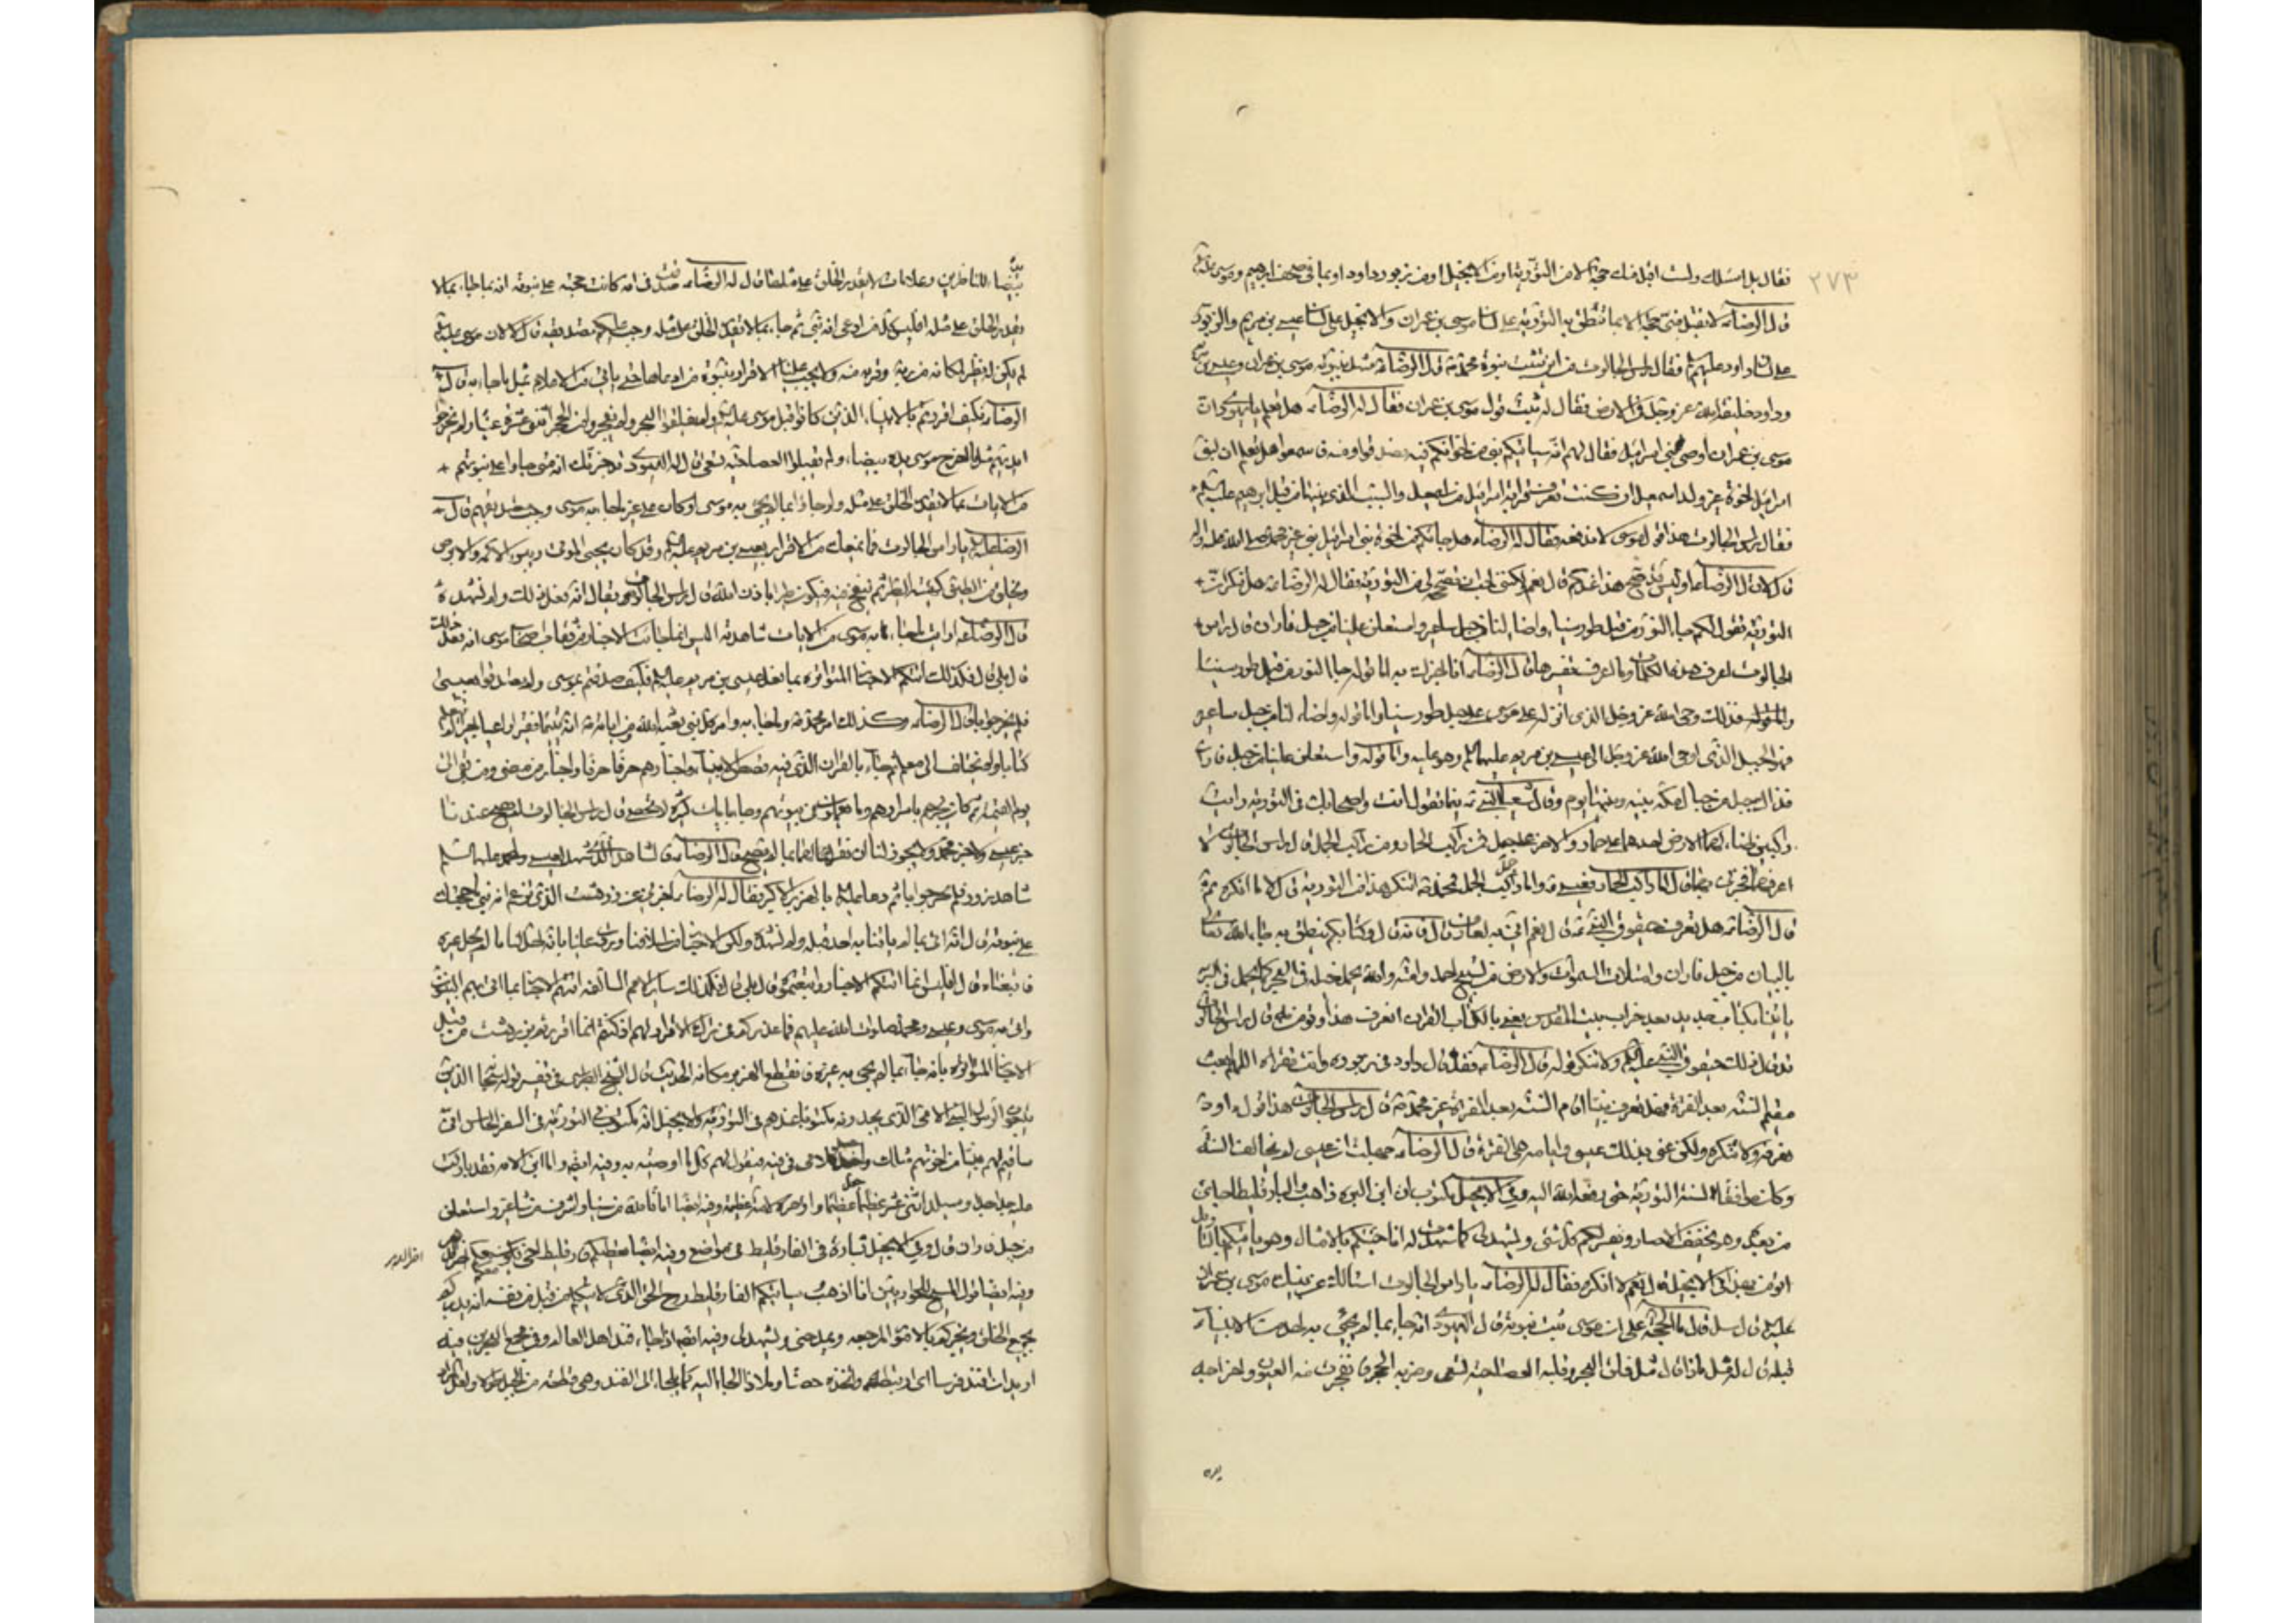 ٢٧٣
فقال بل اسئلك ولست اقبل منك حجة الا من التورية او من الانجيل او من زبور داود او بما فى صحف ابرهيم وموسى
قال الرضا ع لا تقبل منى حجة الا بما تنطق به التورية على لسان موسى بن عمران والانجيل على لسان عيسى بن مريم والزبور
على لسان داود عليهم فقال راس الجالوت من اين تثبت نبوة محمد ص قال الرضا ع شهد بنبوته موسى بن عمران وعيسى بن مريم
وداود خليفة الله عز وجل فى الارض فقال له ثبت قول موسى بن عمران فقال له الرضا ع هل تعلم يا يهودى ان
موسى بن عمران اوصى بنى اسرائيل فقال لهم انه سياتيكم نبى من اخوانكم فبه فصدقوا ومنه فاسمعوا فهل تعلم ان لبنى
اسرائيل اخوة غير ولد اسمعيل ان كنت تعرف قرابة اسرائيل من اسمعيل والسبب الذى بينهما من قبل ابرهيم عليه
فقال راس الجالوت هذا قول موسى لا ندفعه فقال له الرضا ع هل جائكم من اخوة بنى اسرائيل نبى غير محمد صلى الله عليه واله
قال لا قال الرضا ع اوليس قد صح هذا عندكم قال نعم ولكنى احب ان تصححه لى من التورية فقال له الرضا ع هل تنكر ان
التورية تقول لكم جاء النور من قبل طور سيناء واضاء لنا من جبل ساعير واستعلن علينا من جبل فاران قال راس
الجالوت اعرف هذه الكلمات وما اعرف تفسيرها قال الرضا ع انا اخبرك به اما قوله جاء النور من قبل طور سيناء
فذلك وحى الله عز وجل الذى انزله على موسى على جبل طور سيناء واما قوله واضاء لنا من جبل ساعير
فهو الجبل الذى اوحى الله عز وجل الى عيسى بن مريم عليهما وهو عليه واما قوله واستعلن علينا من جبل فاران
فذاك جبل من جبال مكة بينه وبينها يوم وقال شعيا النبى ع فيما تقول انت واصحابك فى التورية رايت
راكبين اضاء لهما الارض احدهما على حمار والاخر على جمل فمن راكب الحمار ومن راكب الجمل قال راس الجالوت لا
اعرفهما فخبرنى بهما قال اما راكب الحمار فعيسى ع واما راكب الجمل فمحمد ص اتنكر هذا من التورية قال لا ما انكره
قال الرضا ع هل تعرف حيقوق النبى ع قال نعم انى به لعارف قال فانه قال وكتابكم ينطق به جاء الله تعالى
بالبيان من جبل فاران وامتلات السموات والارض من تسبيح احمد وامته يحمل خيله فى البحر كما يحمل فى البر
ياتينا بكتاب جديد بعد خراب بيت المقدس يعنى بالكتاب القران اتعرف هذا وتؤمن به قال راس الجالوت
قد قال ذلك حيقوق النبى عليه ولا ننكر قوله قال الرضا ع فقد قال داود فى زبوره وانت تقراه اللهم ابعث
مقيم السنة بعد الفترة فهل تعرف نبيا اقام السنة بعد الفترة غير محمد ص قال راس الجالوت هذا قول داود
نعرفه ولا ننكره ولكن عنى بذلك عيسى وايامه هى الفترة قال الرضا ع جهلت ان عيسى لم يخالف السنة
وكان موافقا لسنة التورية حتى رفعه الله اليه وفى الانجيل مكتوب ان ابن البرة ذاهب والبارقليطا جاى
من بعده وهو يخفف الاصار ويفسر لكم كل شئ ويشهد لى كما شهدت له انا جئتكم بالامثال وهو ياتيكم بالتاويل
اتؤمن بهذا فى الانجيل قال نعم لا انكره فقال له الرضا ع يا راس الجالوت اسالك عن نبيك موسى بن عمران
عليه قال سل قال ما الحجة على ان موسى ثبت نبوته قال اليهودى انه جاء بما لم يجئ به احد من الانبياء
قبله قال له مثل ماذا قال مثل فلق البحر وقلبه العصا حية تسعى وضربه الحجر فانفجرت منه العيون واخراجه
يده
بيضاء للناظرين وعلامات لا يقدر الخلق على مثلها قال له الرضا ع صدقت فى انه كانت حجته على نبوته انه جاء بما لا
يقدر الخلق على مثله افليس كل من ادعى انه نبى ثم جاء بما لا يقدر الخلق على مثله وجب عليكم تصديقه قال لا لان موسى عليه
لم يكن له نظير لمكانه من ربه وقربه منه ولا يجب علينا الاقرار بنبوة من ادعاها حتى ياتى من الاعلام بمثل ما جاء به قال
الرضا ع فكيف اقررتم بالانبياء الذين كانوا قبل موسى عليه ولم يفلقوا البحر ولم يفجروا من الحجر اثنتى عشرة عينا ولم يخرجوا
ايديهم مثل اخراج موسى يده بيضاء ولم يقلبوا العصا حية تسعى قال له اليهودى قد خبرتك انه متى جاؤا على نبوتهم
من الايات بما لا يقدر الخلق على مثله ولو جاؤا بما لم يجئ به موسى او كان على غير ما جاء به موسى وجب تصديقهم قال
الرضا عليه يا راس الجالوت فما يمنعك من الاقرار بعيسى بن مريم عليه وقد كان يحيى الموتى ويبرئ الاكمه والابرص
ويخلق من الطين كهيئة الطير ثم ينفخ فيه فيكون طيرا باذن الله قال راس الجالوت يقال انه فعل ذلك ولم نشهده
قال الرضا ع ارايت ما جاء به موسى من الايات شاهدته اليس انما جاءت الاخبار من ثقات اصحاب موسى انه فعل ذلك
قال بلى قال فكذلك اتتكم الاخبار المتواترة بما فعل عيسى بن مريم عليه فكيف صدقتم بموسى ولم تصدقوا بعيسى
فلم يحر جوابا قال الرضا ع وكذلك امر محمد ص وما جاء به وامر كل نبى بعثه الله ومن اياته انه كان يتيما فقيرا راعيا اجيرا لم يتعلم
كتابا ولم يختلف الى معلم ثم جاء بالقران الذى فيه قصص الانبياء واخبارهم حرفا حرفا واخبار من مضى ومن بقى الى
يوم القيمة ثم كان يخبرهم باسرارهم وما يعملون فى بيوتهم وجاء بايات كثيرة لا تحصى قال راس الجالوت لم يصح عندنا
خبر عيسى ولا خبر محمد ولا يجوز لنا ان نقر لهما بما لم يصح قال الرضا ع فالشاهد الذى شهد لعيسى ولمحمد عليهما السلم
شاهد زور فلم يحر جوابا ثم دعا عليه بالهربذ الاكبر فقال له الرضا ع اخبرنى عن زردهشت الذى تزعم انه نبى ما حجتك
على نبوته قال انه اتى بما لم ياتنا به احد قبله ولم نشهده ولكن الاخبار من اسلافنا وردت علينا بانه احل لنا ما لم يحله غيره
فاتبعناه قال افليس انما اتتكم الاخبار فاتبعتموه قال بلى قال فكذلك سائر الامم السالفة اتتهم الاخبار بما اتى به النبيون
واتى به موسى وعيسى ومحمد صلوات الله عليهم فما عذركم فى ترك الاقرار لهم اذ كنتم انما اقررتم بزردهشت من قبل
الاخبار المتواترة بانه جاء بما لم يجئ به غيره فانقطع الهربذ مكانه الحديث قال الشيخ الطبرسى فى تفسير قوله تعالى الذين
يتبعون الرسول النبى الامى الذى يجدونه مكتوبا عندهم فى التورية والانجيل انه مكتوب فى التورية فى السفر الخامس انى
ساقيم لهم نبيا من اخوتهم مثلك واجعل كلامى فى فيه فيقول لهم كل ما اوصيته به وفيه ايضا واما ابن الامة فقد باركت
عليه جدا جدا وسيلد اثنى عشر عظيما واؤخره لامة عظيمة وفيه ايضا اتانا الله من سيناء واشرف من ساعير واستعلن
من جبال فاران قال وفى الانجيل بشارة فى الفارقليط فى مواضع وفيه ايضا نعطيكم فارقليط اخر يكون معكم اخر الدهر
اخر الدهر
وفيه ايضا قول المسيح للحواريين انا اذهب وسياتيكم الفارقليط روح الحق الذى لا يتكلم من قبل نفسه انه يدبركم
بجميع الخلق ويخبركم بالامور المزمعة ويمدحنى ويشهد لى وفيه ايضا اذا جاء فند اهل العالم وفى مجمع البحرين فيه